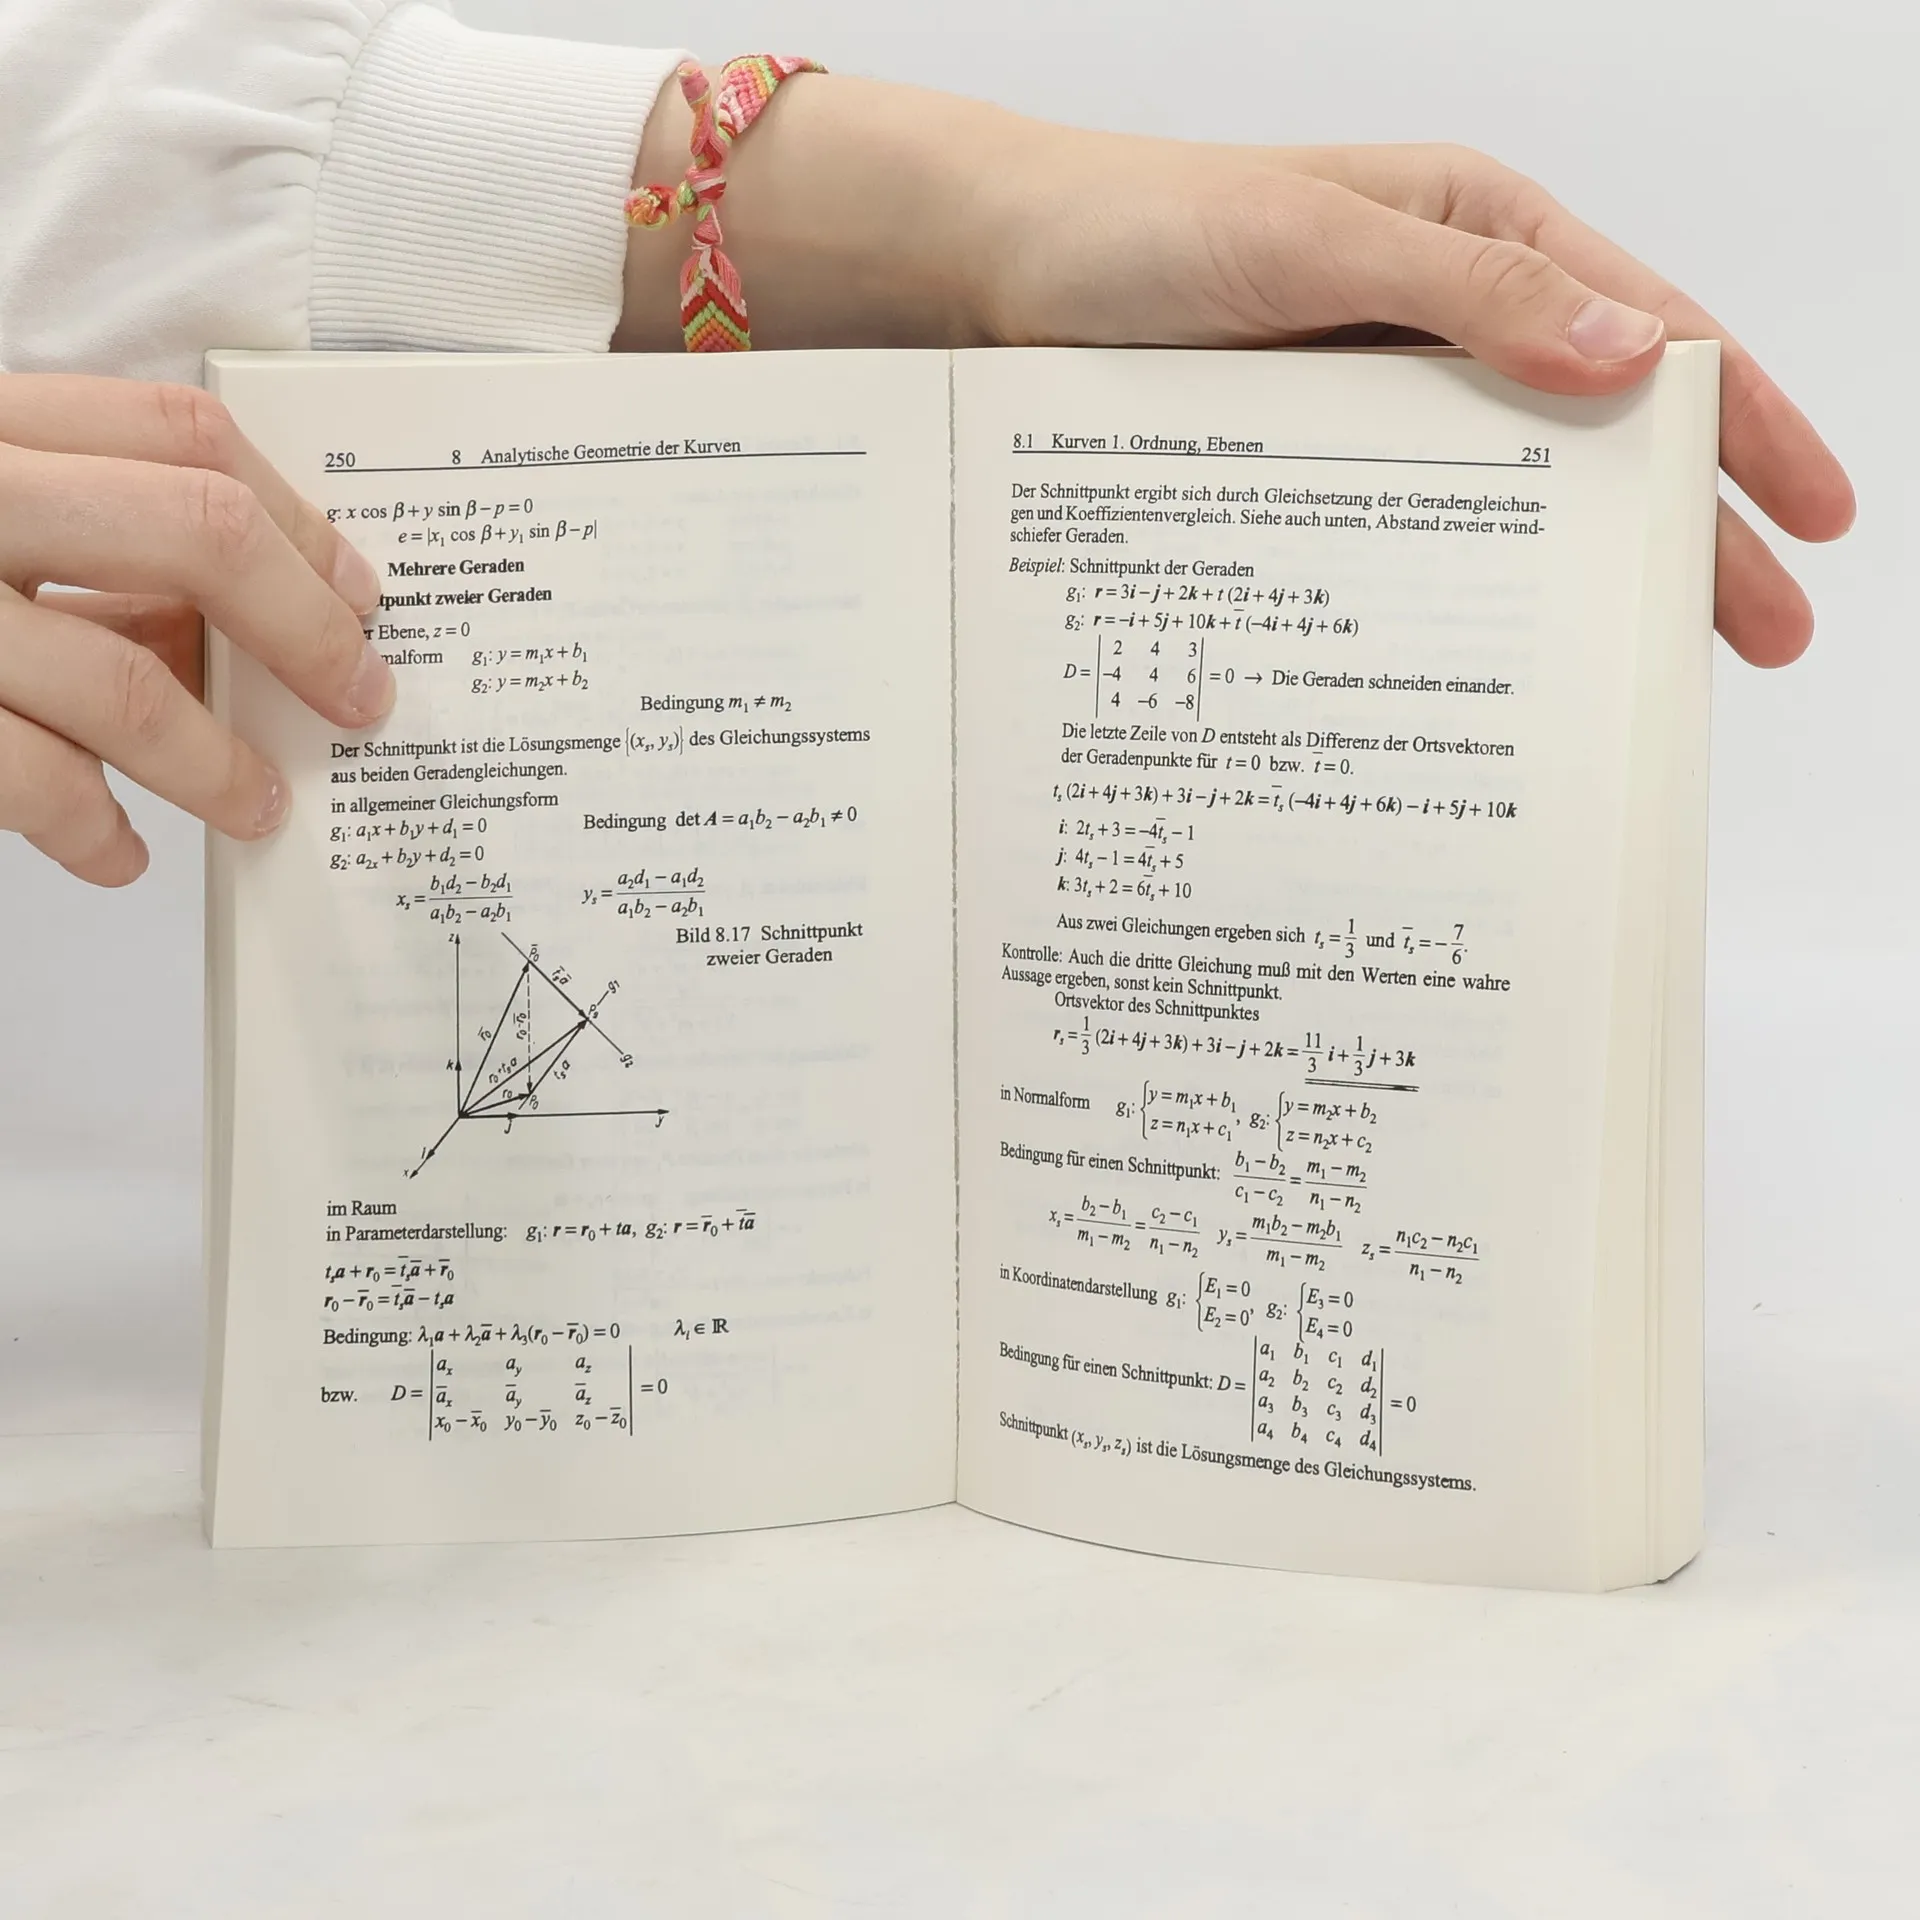 250 8 Analytische Geometrie der Kurven
g: x cos β + y sin β − p = 0
e = |x₁ cos β + y₁ sin β − p|
Mehrere Geraden
tpunkt zweier Geraden
r Ebene, z = 0
malform g₁: y = m₁x + b₁
g₂: y = m₂x + b₂
Bedingung m₁ ≠ m₂
Der Schnittpunkt ist die Lösungsmenge {(xₛ, yₛ)} des Gleichungssystems
aus beiden Geradengleichungen.
in allgemeiner Gleichungsform
g₁: a₁x + b₁y + d₁ = 0 Bedingung det A = a₁b₂ − a₂b₁ ≠ 0
g₂: a₂ₓ + b₂y + d₂ = 0
xₛ = (b₁d₂ − b₂d₁)/(a₁b₂ − a₂b₁) yₛ = (a₂d₁ − a₁d₂)/(a₁b₂ − a₂b₁)
Bild 8.17 Schnittpunkt
zweier Geraden
z P̄₀ t̄ₛā g₁ Pₛ
r̄₀ r₀−r̄₀ g₂
k r₀+tₛa tₛa
r₀ P₀
j y
i
x
im Raum
in Parameterdarstellung: g₁: r = r₀ + ta, g₂: r = r̄₀ + t̄ā
tₛa + r₀ = t̄ₛā + r̄₀
r₀ − r̄₀ = t̄ₛā − tₛa
Bedingung: λ₁a + λ₂ā + λ₃(r₀ − r̄₀) = 0 λᵢ ∈ ℝ
aₓ a_y a_z
bzw. D = āₓ ā_y ā_z = 0
x₀ − x̄₀ y₀ − ȳ₀ z₀ − z̄₀
8.1 Kurven 1. Ordnung, Ebenen 251
Der Schnittpunkt ergibt sich durch Gleichsetzung der Geradengleichun-
gen und Koeffizientenvergleich. Siehe auch unten, Abstand zweier wind-
schiefer Geraden.
Beispiel: Schnittpunkt der Geraden
g₁: r = 3i − j + 2k + t (2i + 4j + 3k)
g₂: r = −i + 5j + 10k + t̄ (−4i + 4j + 6k)
2 4 3
D = −4 4 6 = 0 → Die Geraden schneiden einander.
4 −6 −8
Die letzte Zeile von D entsteht als Differenz der Ortsvektoren
der Geradenpunkte für t = 0 bzw. t̄ = 0.
tₛ (2i + 4j + 3k) + 3i − j + 2k = t̄ₛ (−4i + 4j + 6k) − i + 5j + 10k
i: 2tₛ + 3 = −4t̄ₛ − 1
j: 4tₛ − 1 = 4t̄ₛ + 5
k: 3tₛ + 2 = 6t̄ₛ + 10
Aus zwei Gleichungen ergeben sich tₛ = 1/3 und t̄ₛ = −7/6.
Kontrolle: Auch die dritte Gleichung muß mit den Werten eine wahre
Aussage ergeben, sonst kein Schnittpunkt.
Ortsvektor des Schnittpunktes
rₛ = 1/3 (2i + 4j + 3k) + 3i − j + 2k = 11/3 i + 1/3 j + 3k
in Normalform g₁: {y = m₁x + b₁, g₂: {y = m₂x + b₂
z = n₁x + c₁ z = n₂x + c₂
Bedingung für einen Schnittpunkt: (b₁ − b₂)/(c₁ − c₂) = (m₁ − m₂)/(n₁ − n₂)
xₛ = (b₂ − b₁)/(m₁ − m₂) = (c₂ − c₁)/(n₁ − n₂) yₛ = (m₁b₂ − m₂b₁)/(m₁ − m₂) zₛ = (n₁c₂ − n₂c₁)/(n₁ − n₂)
in Koordinatendarstellung g₁: {E₁ = 0, g₂: {E₃ = 0
E₂ = 0 E₄ = 0
a₁ b₁ c₁ d₁
Bedingung für einen Schnittpunkt: D = a₂ b₂ c₂ d₂ = 0
a₃ b₃ c₃ d₃
a₄ b₄ c₄ d₄
Schnittpunkt (xₛ, yₛ, zₛ) ist die Lösungsmenge des Gleichungssystems.